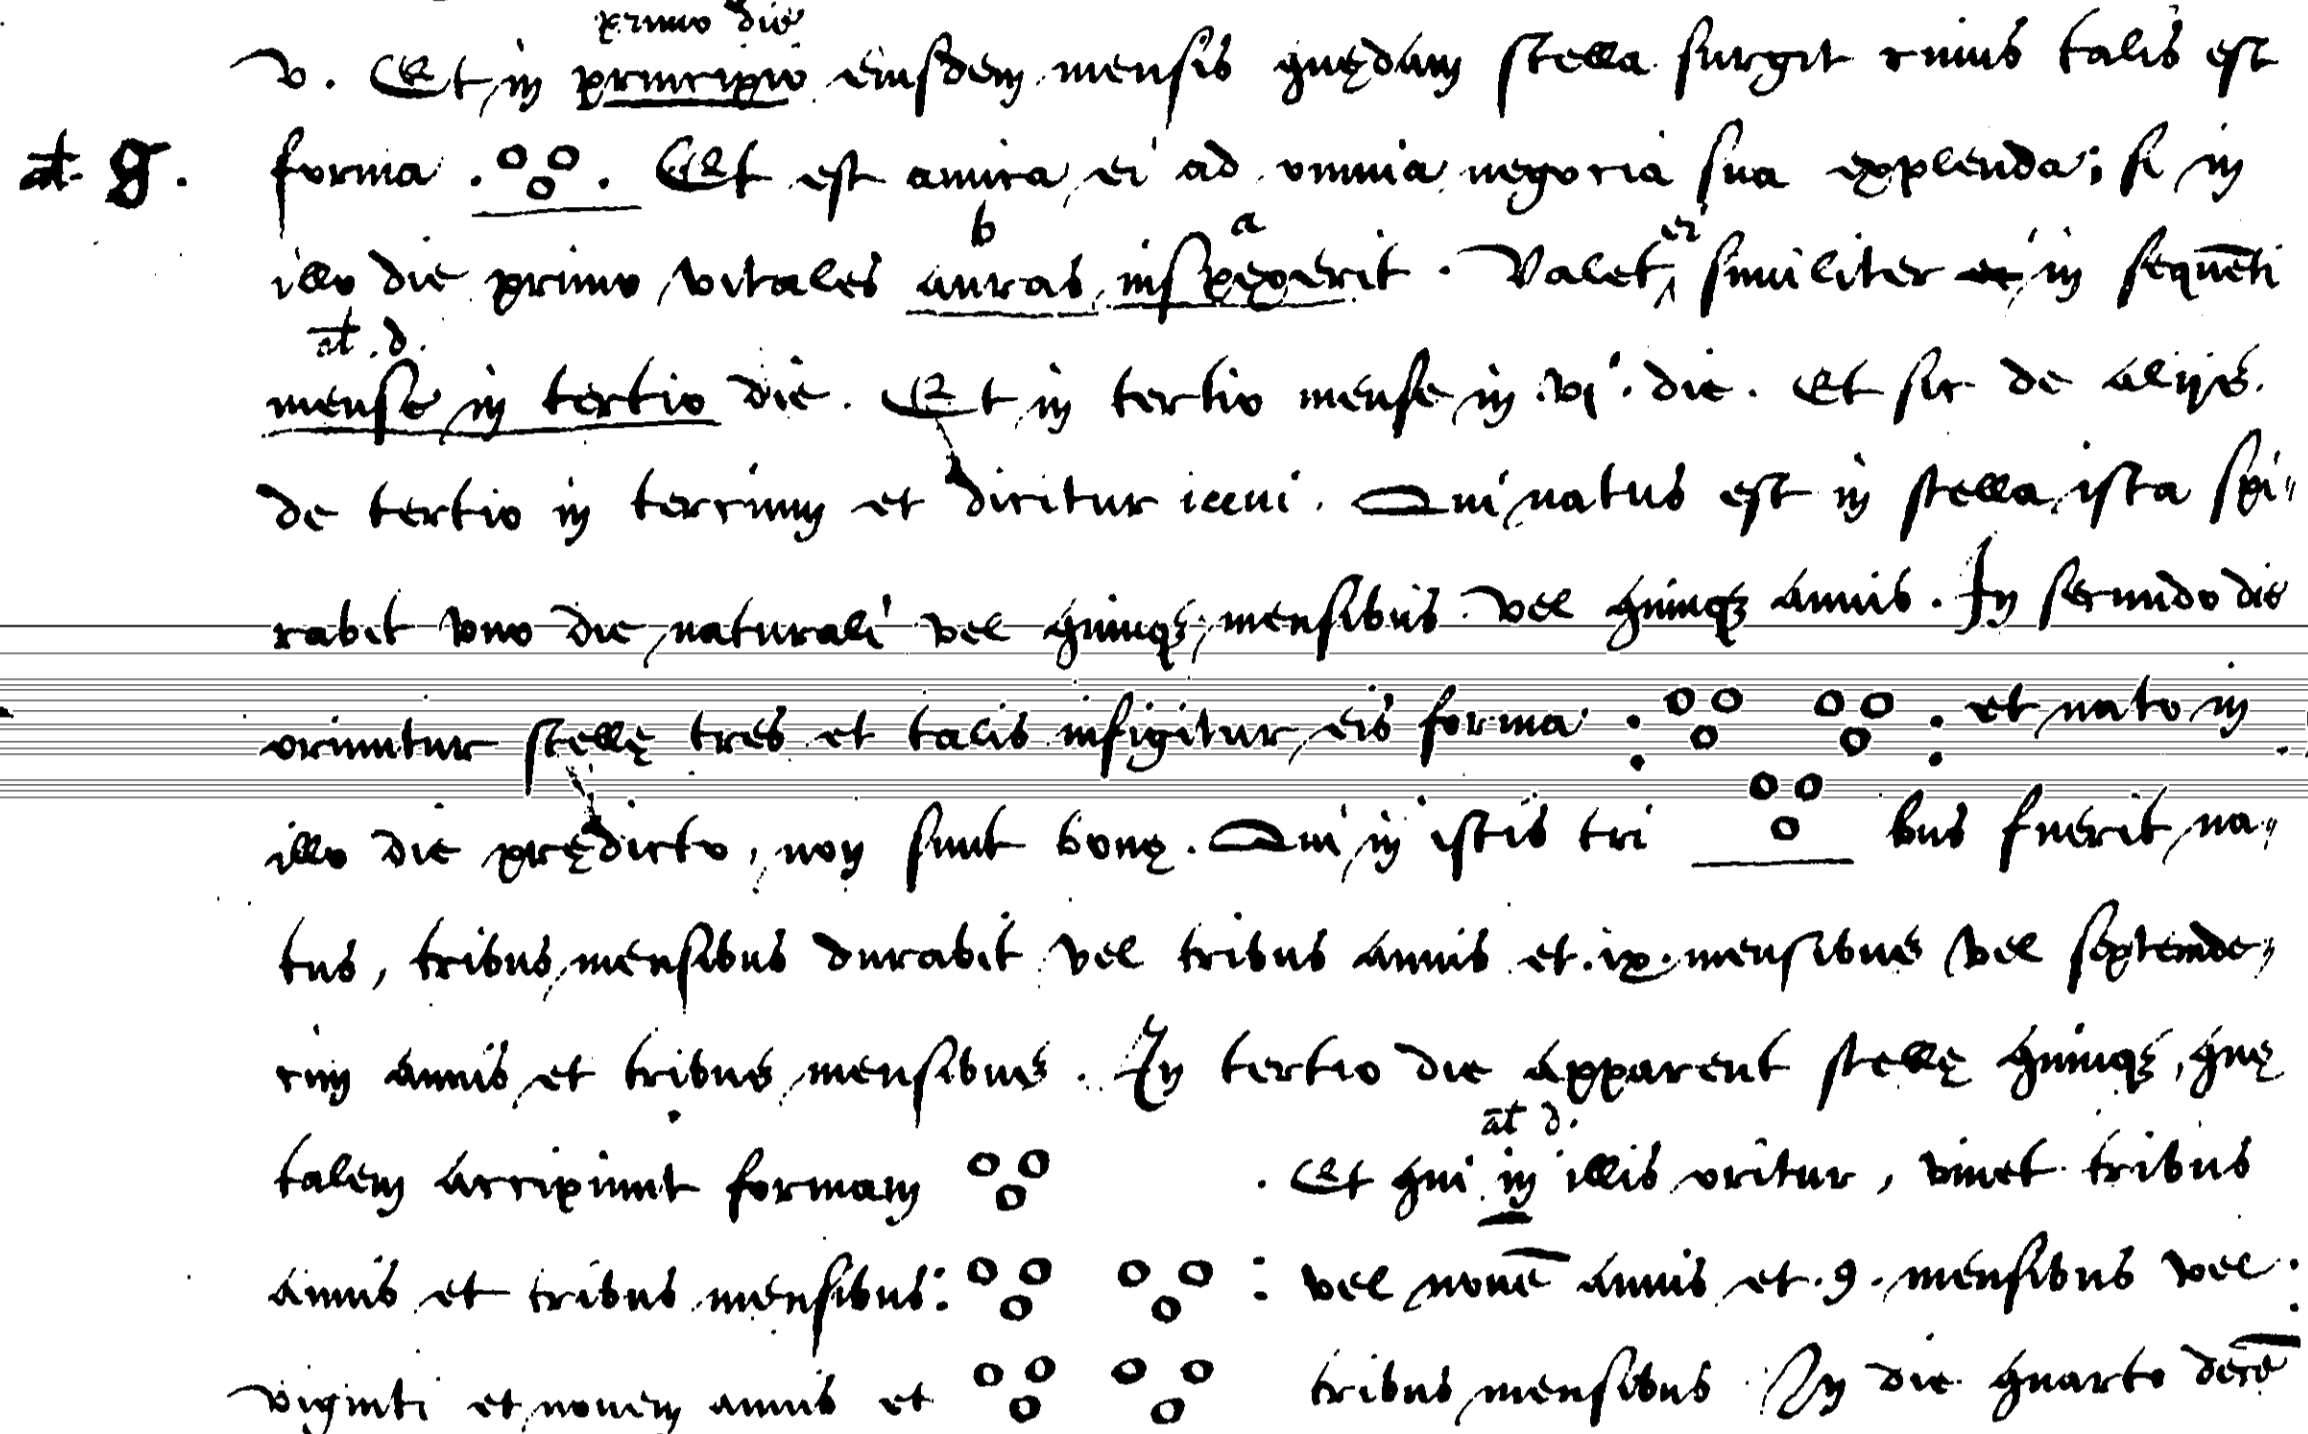 primo die
v. Et in principio eiusdem mensis quędam stella surgit cuius talis est
al. g. forma . . Et est amica ei ad omnia negocia sua explenda; si in
b a ei
illo die primo vitales auras inspexerit. Valet similiter et in sequēti
al. d.
mense in tertio die. Et in tertio mense in .vi. die. Et sic de alijs.
de tertio in tercium et dicitur . Qui natus est in stella ista spi"
rabit vno die naturali vel quinqꝫ mensibus vel quinqꝫ annis. In secundo die
oriuntur stellę tres et talis infigitur eis forma : : et nato in
illo die prędicto, non sunt bonę. Qui in istis tri bus fuerit na"
tus, tribus mensibus durabit vel tribus annis et .ix. mensibus vel septemde"
cim annis et tribus mensibus. In tertio die apparent stellę quinqꝫ, quę
al. d.
talem accipiunt formam . Et qui in illis oritur, viuet tribus
annis et tribus mensibus: : vel nouē annis et .9. mensibus vel
viginti et nouem annis et tribus mensibus In die quarto decē